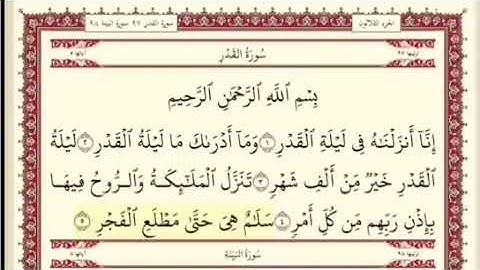 الجزء الثلاثون سورة القدر ٩٧ سورة البينة ٩٨
سُورَةُ القَدْرِ
بِسْمِ ٱللَّهِ ٱلرَّحْمَٰنِ ٱلرَّحِيمِ
إِنَّآ أَنزَلْنَٰهُ فِى لَيْلَةِ ٱلْقَدْرِ ١ وَمَآ أَدْرَىٰكَ مَا لَيْلَةُ ٱلْقَدْرِ ٢ لَيْلَةُ
ٱلْقَدْرِ خَيْرٌ مِّنْ أَلْفِ شَهْرٍ ٣ تَنَزَّلُ ٱلْمَلَٰٓئِكَةُ وَٱلرُّوحُ فِيهَا
بِإِذْنِ رَبِّهِم مِّن كُلِّ أَمْرٍ ٤ سَلَٰمٌ هِىَ حَتَّىٰ مَطْلَعِ ٱلْفَجْرِ ٥
سُورَةُ البَيِّنَةِ